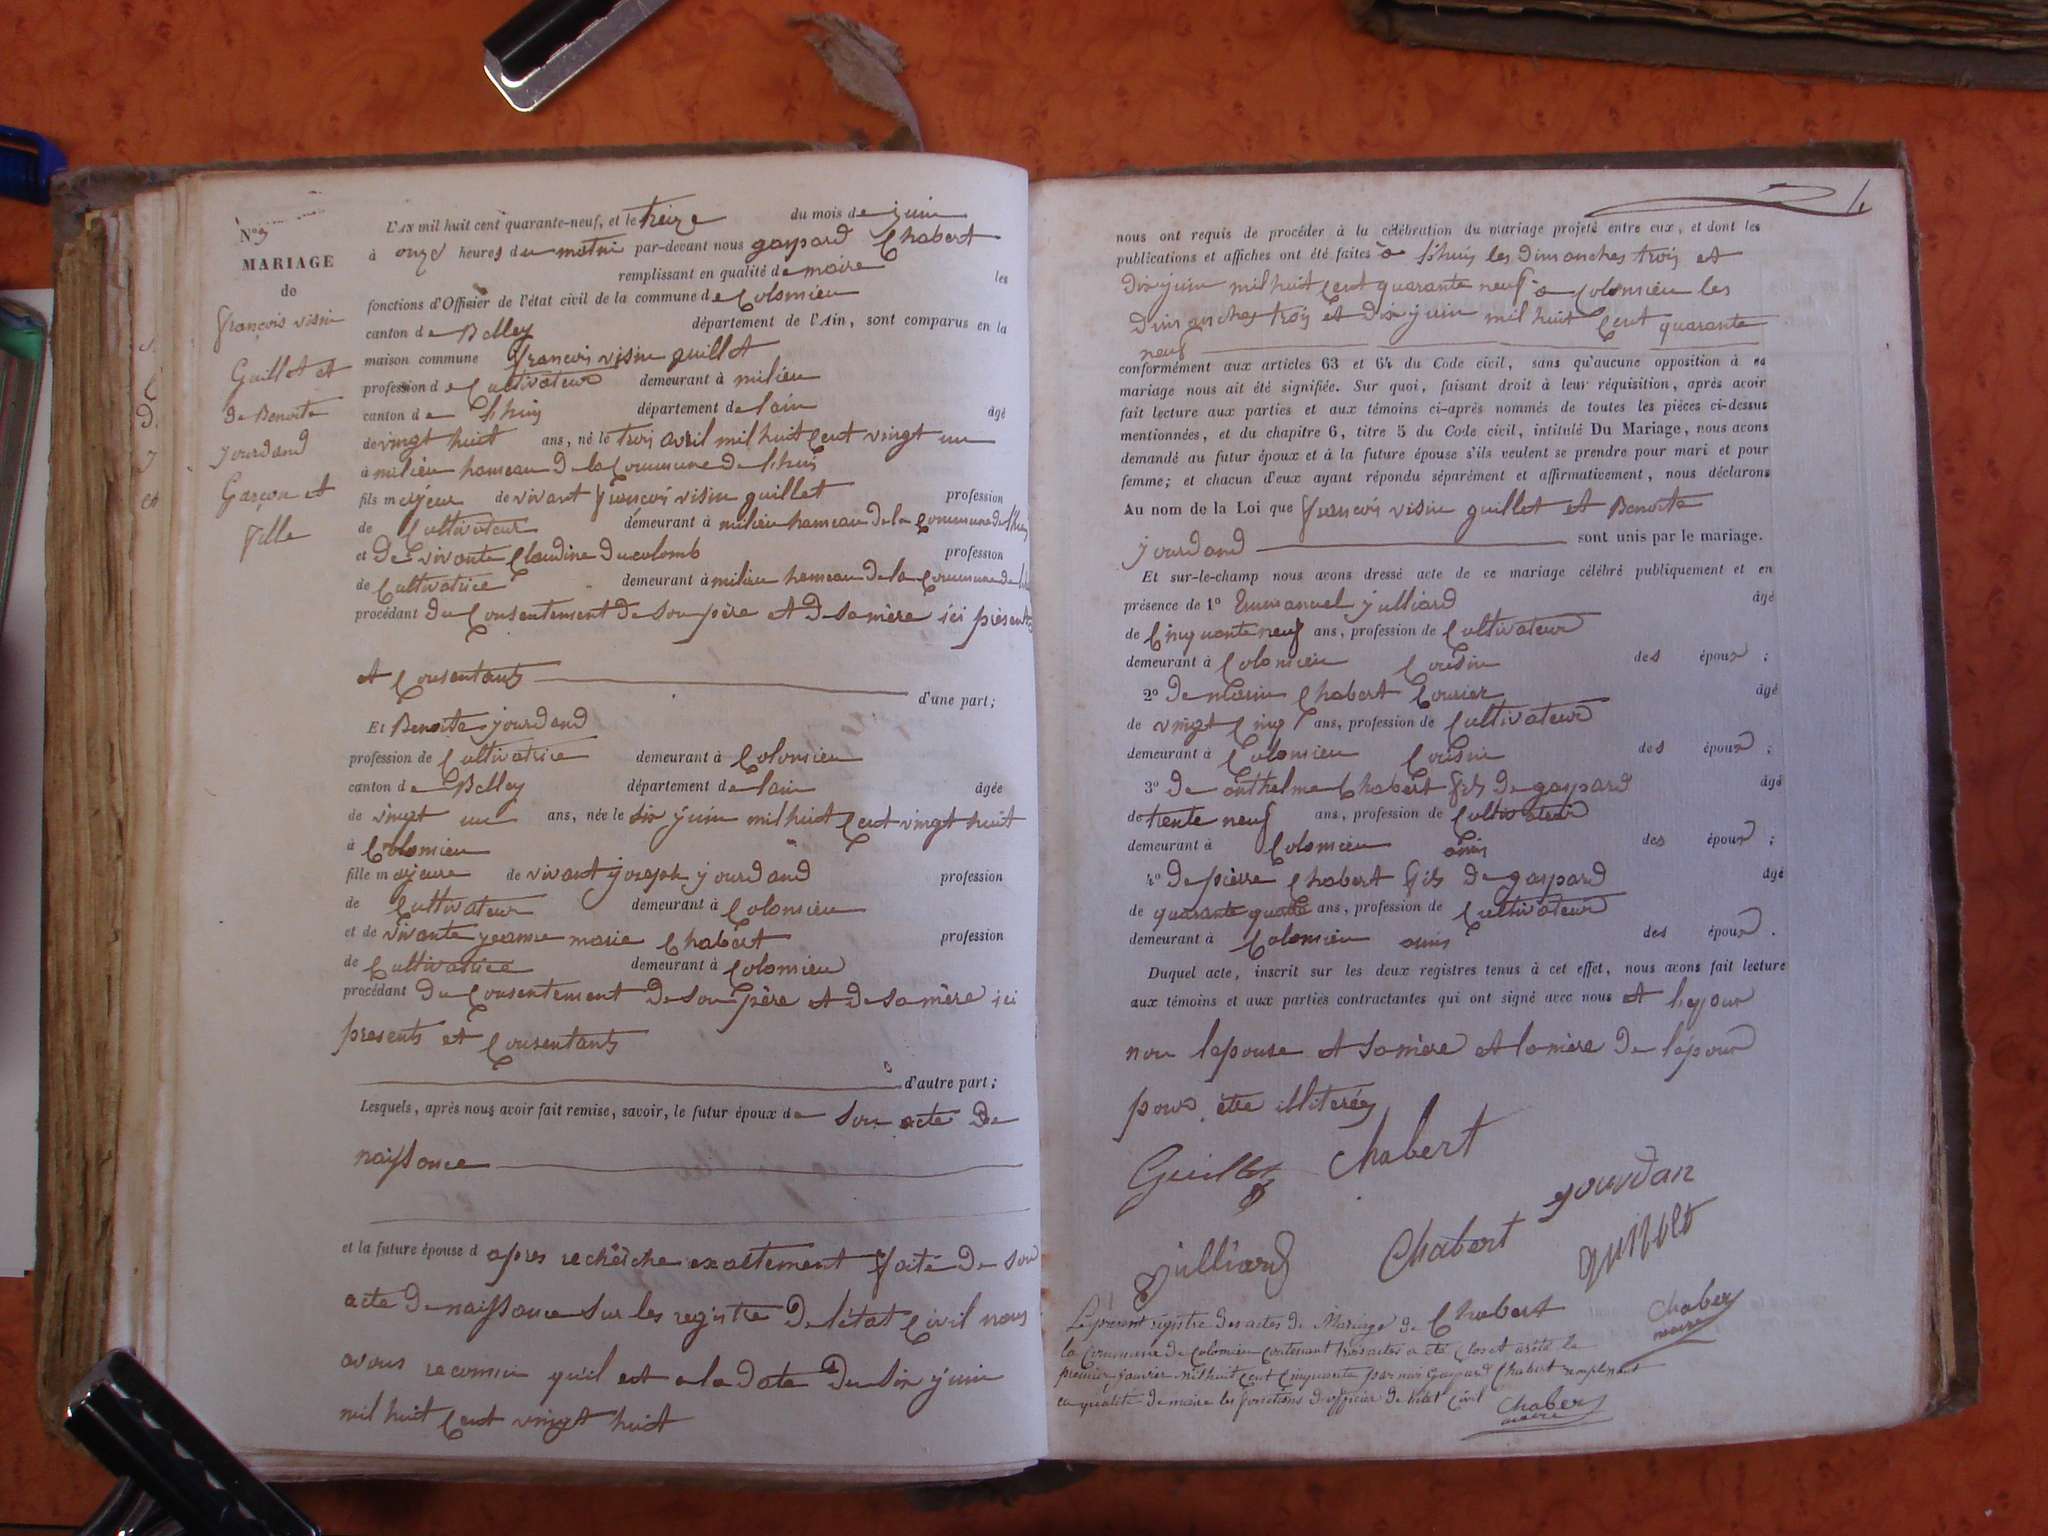 N° 3
MARIAGE
de
françois visin
Guillot et
de Benoite
jourdand
Garçon et
fille
L'AN mil huit cent quarante-neuf, et le treize du mois de juin
à onze heures du matin par-devant nous gaspard Chabert
remplissant en qualité de maire les
fonctions d'Officier de l'état civil de la commune de Colomieu
canton de Belley département de l'Ain, sont comparus en la
maison commune françois visin guillot
profession de Cultivateur demeurant à milieu
canton de Lhuis département de lain âgé
de vingt huit ans, né le trois avril mil huit Cent vingt un
à milieu hameau de la Commune de lhuis
fils majeur de vivant françois visin guillot profession
de Cultivateur demeurant à milieu hameau de la Commune de lhuis
et de vivante Claudine ducolomb profession
de Cultivatrice demeurant à milieu hameau de la Commune de
procédant du Consentement de son père et de sa mère ici présents
et Consentants d'une part;
Et Benoite jourdand
profession de Cultivatrice demeurant à Colomieu
canton de Belley département de lain âgée
de vingt un ans, née le six juin mil huit Cent vingt huit
à Colomieu
fille majeure de vivant joseph jourdand profession
de Cultivateur demeurant à Colomieu
et de vivante jeanne marie Chabert profession
de Cultivatrice demeurant à Colomieu
procédant du Consentement de son père et de sa mère ici
presents et Consentants
d'autre part;
Lesquels, après nous avoir fait remise, savoir, le futur époux de son acte de
naissance
et la future épouse d apres recherche exactement faite de son
acte de naissance sur les registre de létat Civil nous
avons reconnu qu'il est a la date du six juin
mil huit Cent vingt huit
nous ont requis de procéder à la célébration du mariage projeté entre eux, et dont les
publications et affiches ont été faites à Lhuis les dimanches trois et
dix juin mil huit Cent quarante neuf a Colomieu les
dimanches trois et dix juin mil huit Cent quarante
neuf
conformément aux articles 63 et 64 du Code civil, sans qu'aucune opposition à ce
mariage nous ait été signifiée. Sur quoi, faisant droit à leur réquisition, après avoir
fait lecture aux parties et aux témoins ci-après nommés de toutes les pièces ci-dessus
mentionnées, et du chapitre 6, titre 5 du Code civil, intitulé Du Mariage, nous avons
demandé au futur époux et à la future épouse s'ils veulent se prendre pour mari et pour
femme; et chacun d'eux ayant répondu séparément et affirmativement, nous déclarons
Au nom de la Loi que françois visin guillot et Benoite
jourdand sont unis par le mariage.
Et sur-le-champ nous avons dressé acte de ce mariage célébré publiquement et en
présence de 1° Emmanuel julliard âgé
de Cinquante neuf ans, profession de Cultivateur
demeurant à Colomieu Cousin des époux ;
2° de Marin Chabert âgé
de vingt Cinq ans, profession de Cultivateur
demeurant à Colomieu Cousin des époux ;
3° de anthelme Chabert fils de gaspard âgé
de trente neuf ans, profession de Cultivateur
demeurant à Colomieu amis des époux ;
4° de pierre Chabert fils de gaspard âgé
de quarante quatre ans, profession de Cultivateur
demeurant à Colomieu amis des époux .
Duquel acte, inscrit sur les deux registres tenus à cet effet, nous avons fait lecture
aux témoins et aux parties contractantes qui ont signé avec nous et lepoux
non lepouse et sa mère et la mère de lépoux
pour être illiterés
Guillot Chabert
jourdan
julliard Chabert guillot
Chabert
Chabert
maire
Le présent registre des actes de Mariage de
la Commune de Colomieu Contenant trois actes a été Clos et arêté le
premier janvier mil huit Cent Cinquante par moi Gaspard Chabert remplissant
en qualité de maire les fonctions d'officier de létat Civil
Chabert
maire